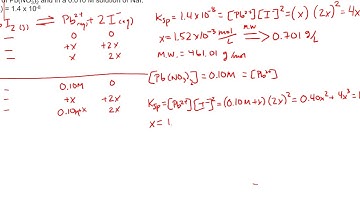 of Pb(NO₃)₂ and in a 0.010 M solution of NaI.
) = 1.4 x 10⁻⁸
I₂ (s) ⇌ Pb²⁺(aq) + 2 I⁻(aq)
— 0 0
— +x +2x
— x 2x
Ksp = 1.4 x 10⁻⁸ = [Pb²⁺][I⁻]² = (x) (2x)² = 4x
x = 1.52 x 10⁻³ mol/L M.W. → 0.701 g/L
M.W. = 461.01 g/mol
[Pb(NO₃)₂] = 0.10M = [Pb²⁺]
— 0.10M 0
— +x +2x
— 0.10+x 2x
Ksp = [Pb²⁺][I⁻]² = (0.10M+x)(2x)² = 0.40x² + 4x³ = 1
x = 1.